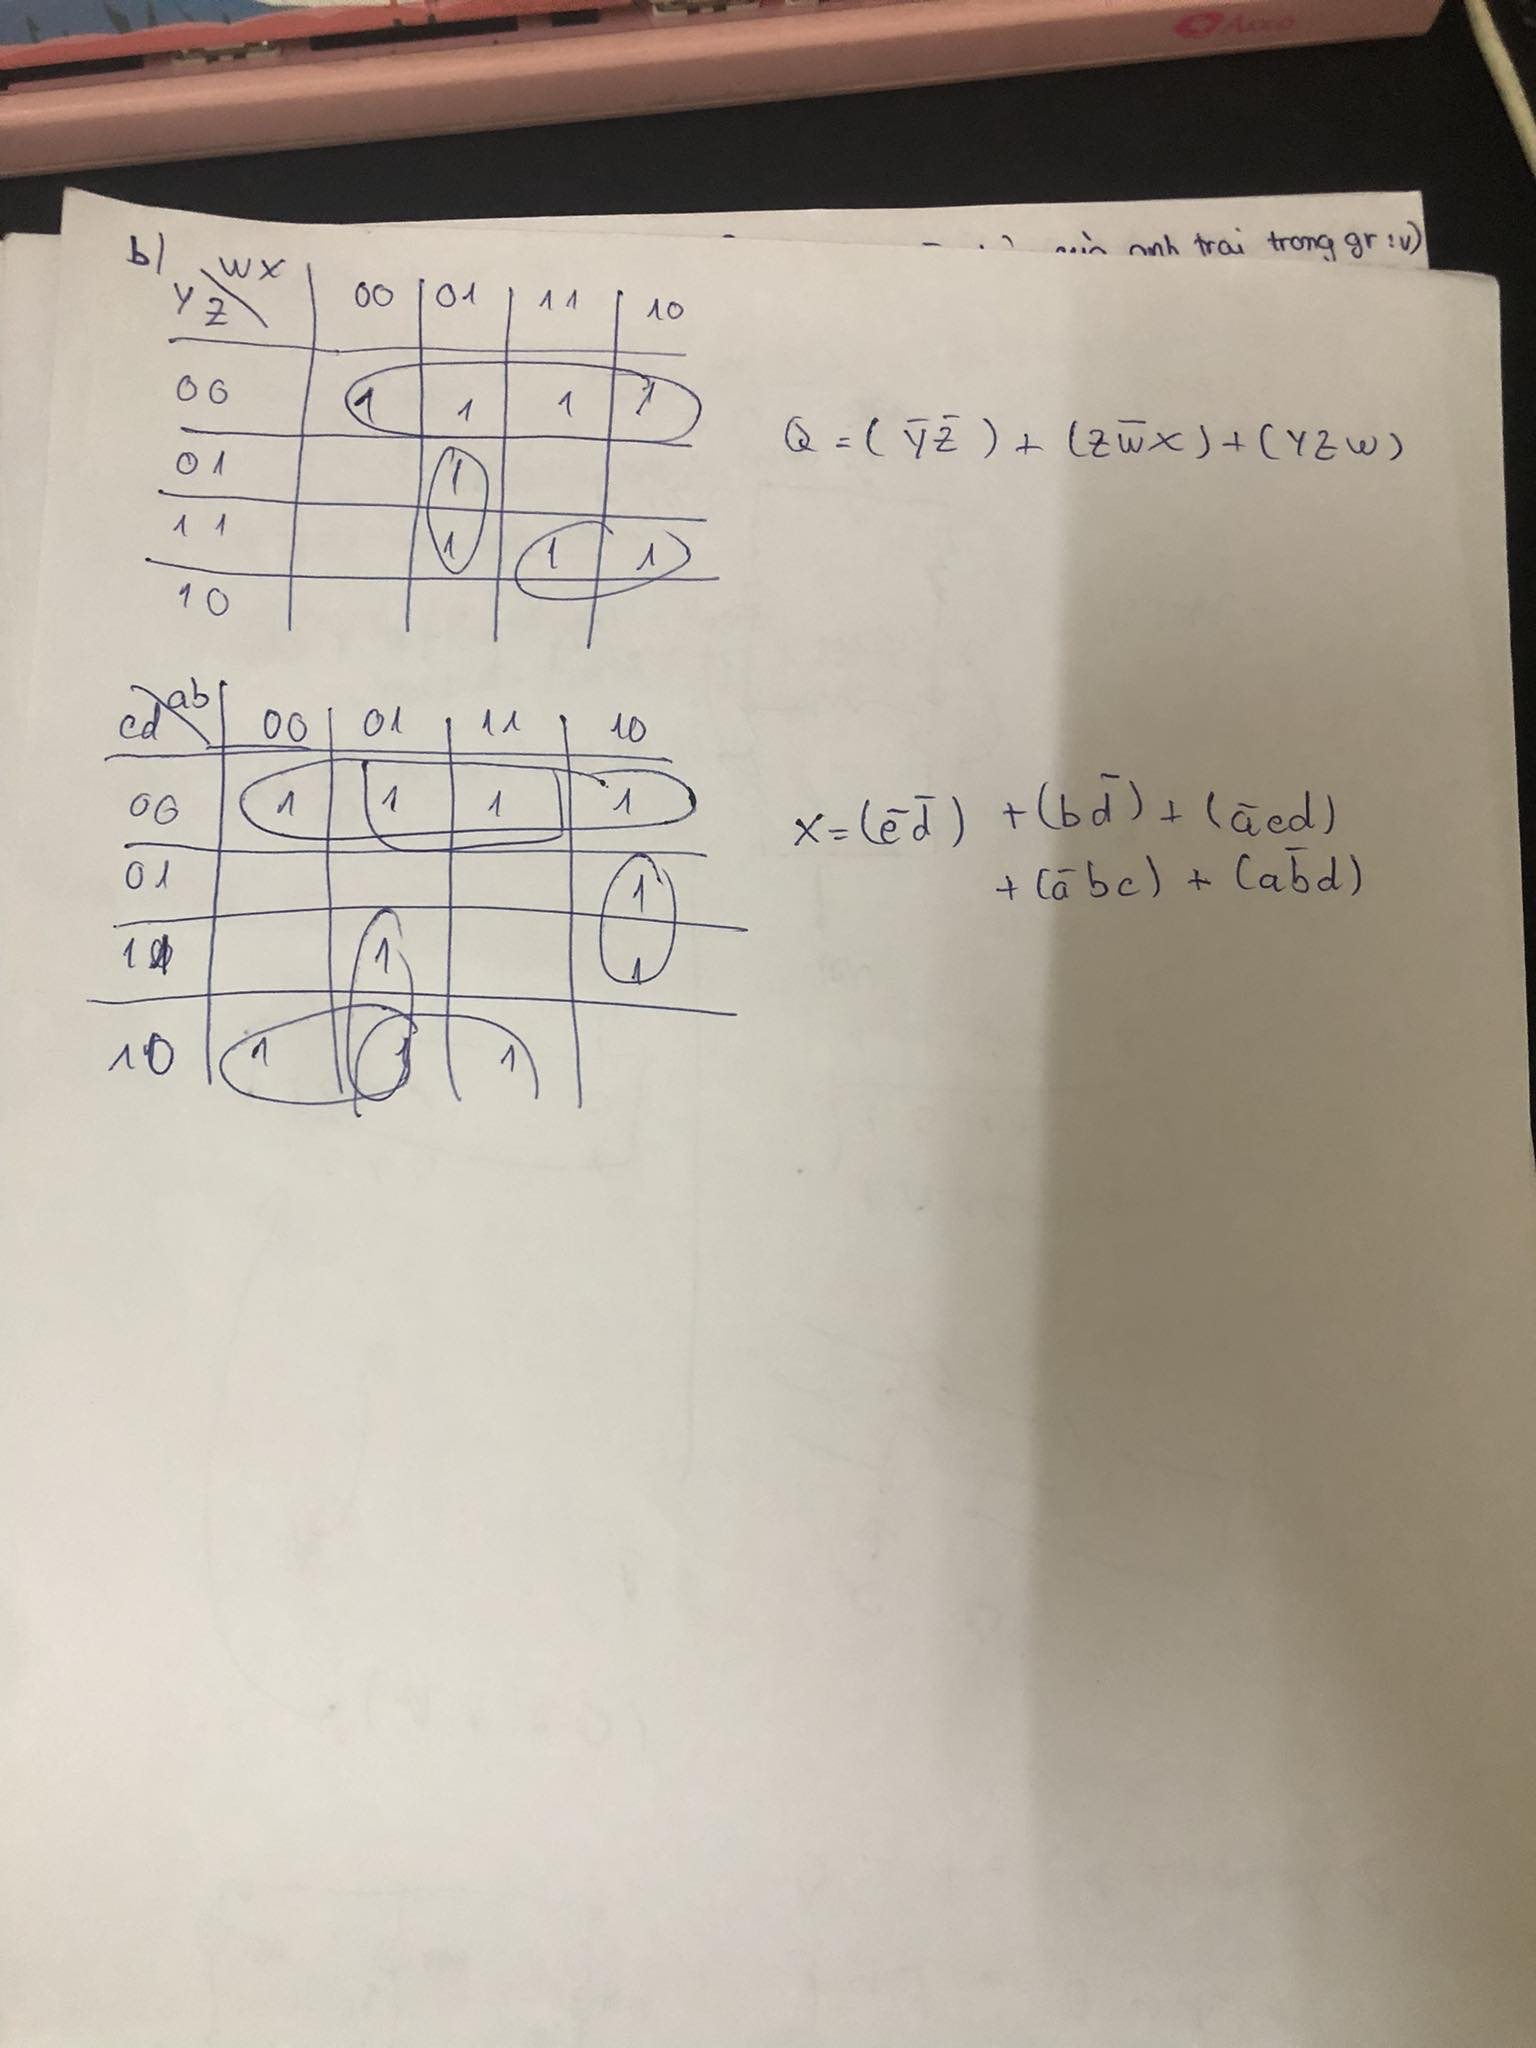 Akko
anh trai trong gr :v)
b)
WX
YZ 00 01 11 10
00 1 1 1 1
01 1
11 1 1 1
10
Q = ( ȳ z̄ ) + (z w̄ x) + (y z w)
ab
cd 00 01 11 10
00 1 1 1 1
01 1
11 1 1
10 1 1 1
X = (c̄ d̄) + (b d̄) + (ā c d)
+ (ā b c) + (a b̄ d)